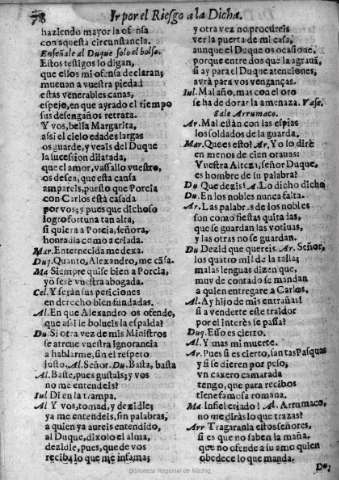 78
Ir por el Riesgo a la Dicha.
haziendo mayor la ofensa
con aquesta circunstancia.
Enseñale al Duque solo el bolso.
Estos testigos lo digan,
que ellos mi ofensa declaran;
mueuan a vuestra piedad
estas venerables canas,
espejo, en que ayrado el tiempo
sus desengaños retrata.
Y vos, bella Margarita,
assi el cielo edades largas
os guarde, y veais del Duque
la sucession dilatada,
que el amor, vassallo vuestro,
os desea, que esta causa
ampareis, puesto que Porcia
con Carlos està casada
por vos; y pues que dichoso
logrò fortuna tan alta,
si quiera a Porcia, señora,
honradla como a criada.
Mar. Enternecida me dexa.
Duq. Quanto, Alexandro, me cãsa.
Ma. Siempre quise bien a Porcia,
yo serè vuestra abogada.
Cel. Y seràn sus peticiones
en derecho bien fundadas.
Al. En que Alexandro os ofende,
que assi le bolueis la espalda?
Du. Si otra vez de mis Ministros
se atreue vuestra ignorancia
a hablarme, sin el respeto
justo, Al. Señor. Du. Basta, basta
Al. Baste, pues gustais; y vos
no me entendeis?
Iul. Di en la trampa.
Al. Y vos, tomad, y dezidle
ya me entendeis, sin palabras,
a quien ya aureis entendido,
al Duque, dixolo el alma,
dezidle, pues, que de vos
recibalo que me infama;
y otra vez no procureis
ver la puerta de mi casa,
aunque el Duque os ocasione,
porque entre dos que la agrauã,
si ay para el Duque atenciones,
avrà para vos venganças.
Iul. Mal año, mas con el oro
se ha de dorar la amenaza. Vase.
Sale Arrumaco.
Ar. Mal estàn con las espias
los soldados de la guarda.
Mar. Que es esto? Ar. Yo lo dirè
en menos de cien oraous:
Vuestra Alteza, señor Duque,
es hombre de su palabra?
Du. Que dezis? A. Lo dicho dicho
Du. En los nobles nunca falta.
Ar. Las palabras de los nobles
son como fiestas quita las,
que se guardan las votiuas,
y las otras no se guardan.
Du. Dezid que quereis. Ar. Señor,
los quatro mil de la talla;
malas lenguas dizen que,
muy de contado se mandan
a quien entregare a Carlos.
Al. Ay hijo de mis entrañas!
si a venderte este traidor
por el interès se passa?
Duq. Esso es cierto.
Al. Y mas mi muerte.
Ar. Pues si es cierto, santas Pasquas
y si se dieren por pelo,
vn caxero camarada
tengo, que para recibos
tiene famosa romana.
Ma. Infiel criado! Al. Arrumaco,
no me diràs lo que trazas?
Arr. Tragaranla estos señores,
si es que no saben la maña,
que no ofende a su amo quien
obedece lo que manda.
Du.
Biblioteca Regional de Madrid